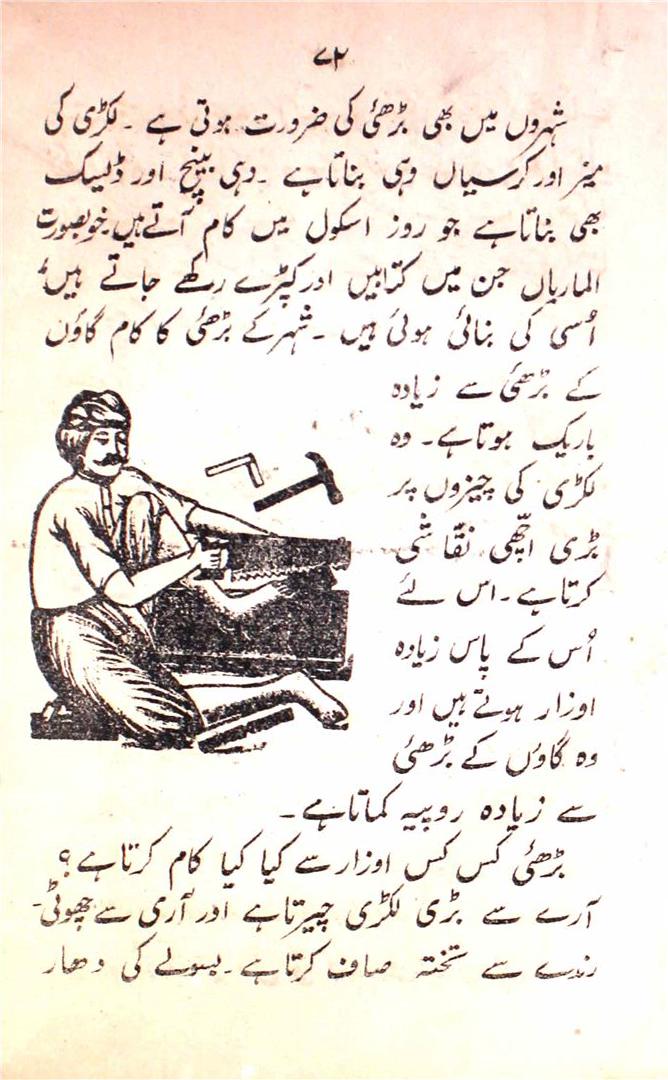 ۷۲
شہروں میں بھی بڑھئی کی ضرورت ہوتی ہے ۔ لکڑی کی
میز اور کرسیاں وہی بناتا ہے ۔ وہی بینچ اور ڈلیسک
بھی بناتا ہے جو روز اسکول میں کام آتے ہیں خوبصورت
الماریاں جن میں کتابیں اور کپڑے رکھے جاتے ہیں،
اُسی کی بنائی ہوئی ہیں ۔ شہر کے بڑھئی کا کام گاؤں
کے بڑھئی سے زیادہ
باریک ہوتا ہے ۔ وہ
لکڑی کی چیزوں پر
بڑی اچّھی نقّاشی
کرتا ہے ۔ اس لئے
اُس کے پاس زیادہ
اوزار ہوتے ہیں اور
وہ گاؤں کے بڑھئی
سے زیادہ روپیہ کماتا ہے ۔
بڑھئی کس کس اوزار سے کیا کیا کام کرتا ہے؟
آرے سے بڑی لکڑی چیرتا ہے اور آری سے چھوٹی ۔
رندے سے تختہ صاف کرتا ہے ۔ بسولے کی دھار